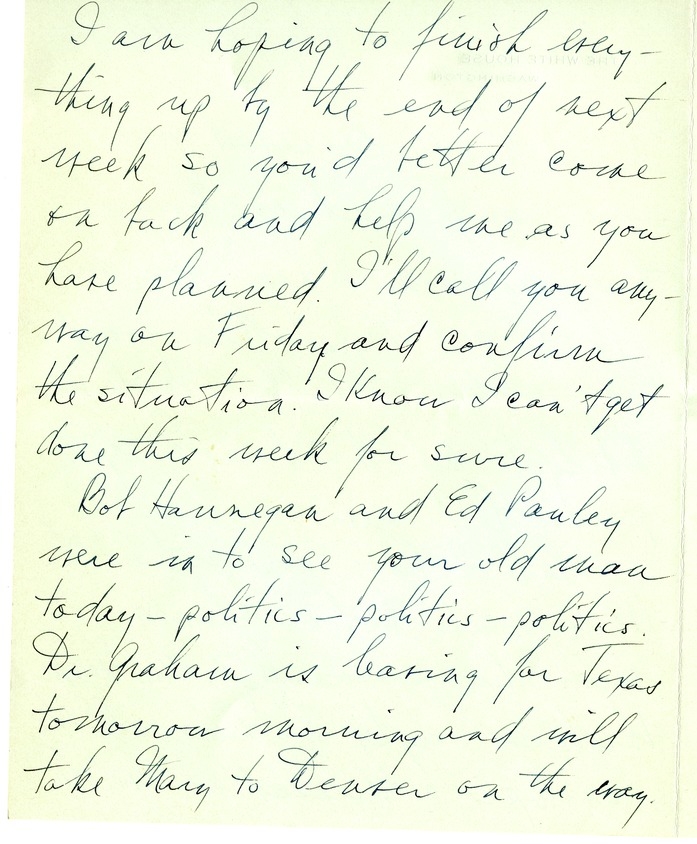 I am hoping to finish every-
thing up by the end of next
week so you'd better come
on back and help me as you
have planned. I'll call you any-
way on Friday and confirm
the situation. I Know I can't get
done this week for sure.
Bob Hannegan and Ed Pauley
were in to see your old man
today - politics - politics - politics.
Dr. Graham is leaving for Texas
tomorrow morning and will
take Mary to Denver on the way.